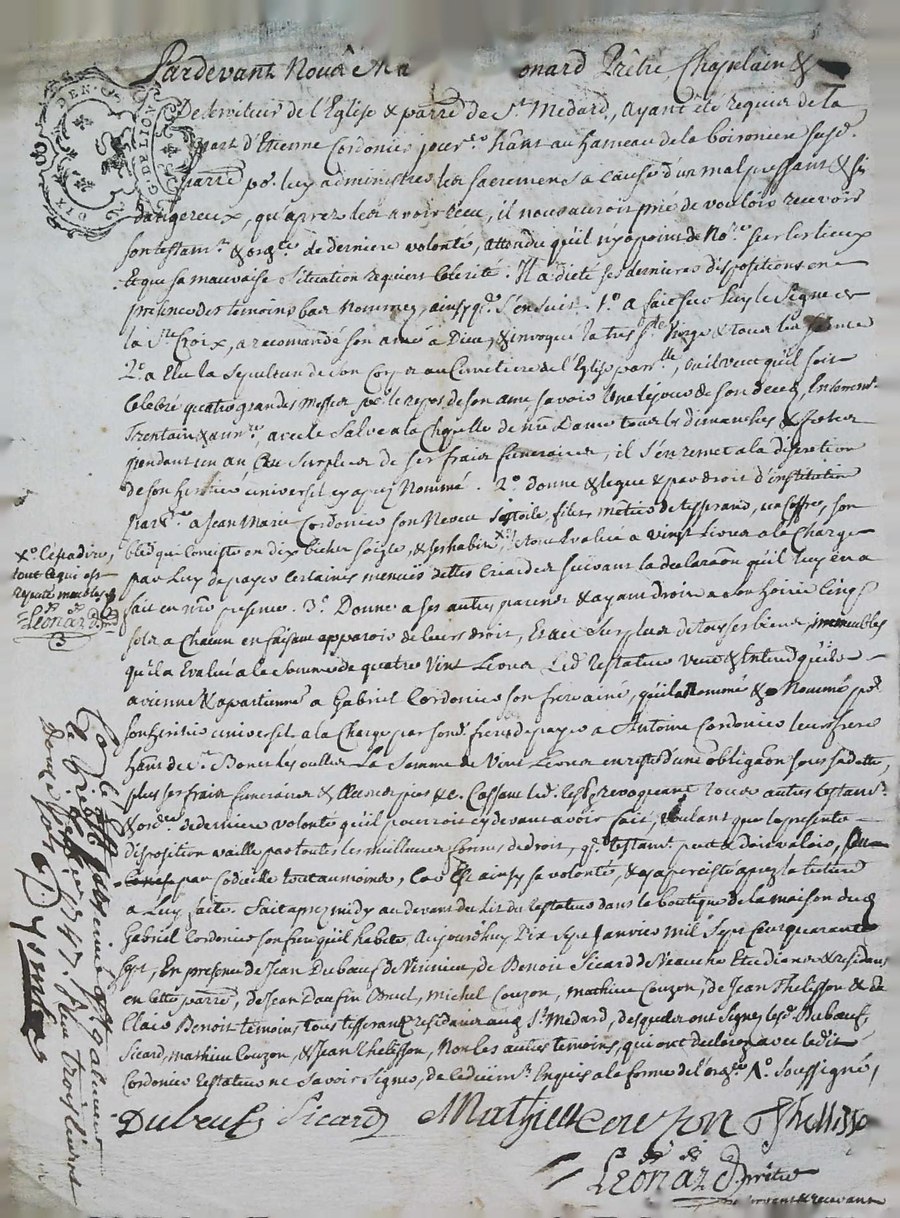 DIX DEN.
G. DE LION
Pardevant Nous Me onard Prêtre Chapelain &
Deserviteur de l'Eglise & parre de St Medard, ayant été requis de la
part d'Etienne Cordonier hant au hameau de la
parre po. luy administrer les sacremens a cause d'un mal pressant & si
dangereux, qu'apres les avoir Receu, il nous auroit prié de vouloir recevoir
son testamt. & de derniere volonté, attendu qu'il n'y a point de Nore. sur les lieux
Et que sa mauvaise Situation requiert Celerité. Il a dicté ses dernieres dispositions en
presence des temoins bas Nommez, ainsy q. S'en suit. 1o. a fait sur luy le Signe de
la Ste Croix, a recomandé son ame a Dieu, & invoqué la tres Ste Vierge & tous les saints
2o. a Elu la Sepulture de Son Corps au Cimetiere de l'Eglise parlle, Veut qu'il soit
Celebré quatre grandes Messes po. le repos de son ame savoir Une le jour de son decez, Enterremt.
Trentain & ann.re, avec le Salve a la Chapelle de nre Dame tous les dimanches & festes
pendant un an Au Surplus de ses fraix funeraires, il s'en remet a la discretion
de son heritier universel cy apres Nommé. 2o. donne & legue & par droit d'institution
a Jean Marie Cordonier son Neveu toile, filet, métier de tisserand, un coffre, son
bled que Consiste en dix bichet soigle, & ses habits x le tout Evalué a vingt Livres a la Charge
par Luy de payer Certaines menues dettes Criardes suivant la declaraon qu'il luy en a
fait en nre presence. 3o. Donne a ses autres parens & ayant droit a son hoirie Cinq
sols a Chacun en faisant apparoir de leurs droit, Et au Surplus de tous ses biens immeubles
qu'il a Evalué a la Somme de quatre Vint Livres Led. testateur veut & Entend qu'ils
avienne & apartienne a Gabriel Cordonier son frere ainé, qu'il a Nommé & Nomme po.
son heritier universel a la Charge par sond. frere de payer a Antoine Cordonier leur frere
hant de St. Bonet les oulles La Somme de Vint Livres en reste d'une obligaon sous sa datte,
plus ses fraix funeraires & Oeuvres pies &c. Cassant led. test. & revoquant tous autres testamt.
& ord. de derniere volonté qu'il pourroit cy devant avoir fait, Voulant que la presente
disposition vaille par toutes les meilleures formes de droit, q. testamt. peut & doit valoir,
par Codicille tout au moins, Car Est ainsy sa volonté, & y a persisté aprez la lecture
a Luy faite. Fait aprez midy au devant du Lit du testateur dans la boutique de la maison dud.
Gabriel Cordonier son frere qu'il habite, Aujourdhuy Dix Sept Janvier Mil Sept Cent quarante
Sept, En presence de Jean Dubeuf de Virinieu, de Benoit Sicard de Veauche Etudians & residans
en cette parre, de Jean Daufin Obrul, michel Couzon, mathieu Couzon, de Jean Thelisson & de
Clair Benoit temoins, tous tisserans & residans aud. St. Medard, desquels ont Signez lesd. Dubeuf,
Sicard, mathieu Couzon, & Jean Thelisson, Non les autres temoins, qui ont declarez avec ledit
Cordonier testateur ne Savoir Signer, de ce duemt. Enquis a la forme de l'ord. Soussigné,
Dubeuf Sicard Mathieu Couzon J Thellisso
Leonard prêtre
recevant
x C'est a dire,
tout ce qui est
reputé meubles
Leonard
Controllé
Le 1747. Reçu trois livres